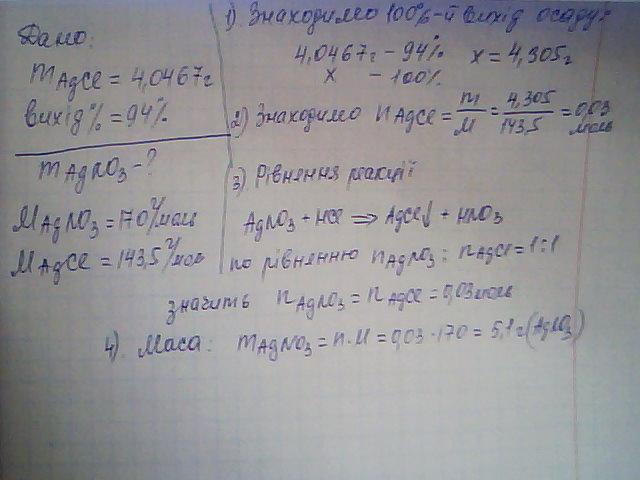 Дано:
mAgCl = 4,0467г
вихід% = 94%
mAgNO₃ - ?
MAgNO₃ = 170 г/моль
MAgCl = 143,5 г/моль
1) Знаходимо 100%-й вихід осаду:
4,0467г - 94% x = 4,305г
x - 100%
2) Знаходимо nAgCl = m/M = 4,305/143,5 = 0,03 моль
3) Рівняння реакції
AgNO₃ + HCl ⟹ AgCl↓ + HNO₃
по рівненню nAgNO₃ : nAgCl = 1:1
значить nAgNO₃ = nAgCl = 0,03 моль
4). Маса: mAgNO₃ = n·M = 0,03 · 170 = 5,1 г (AgNO₃)